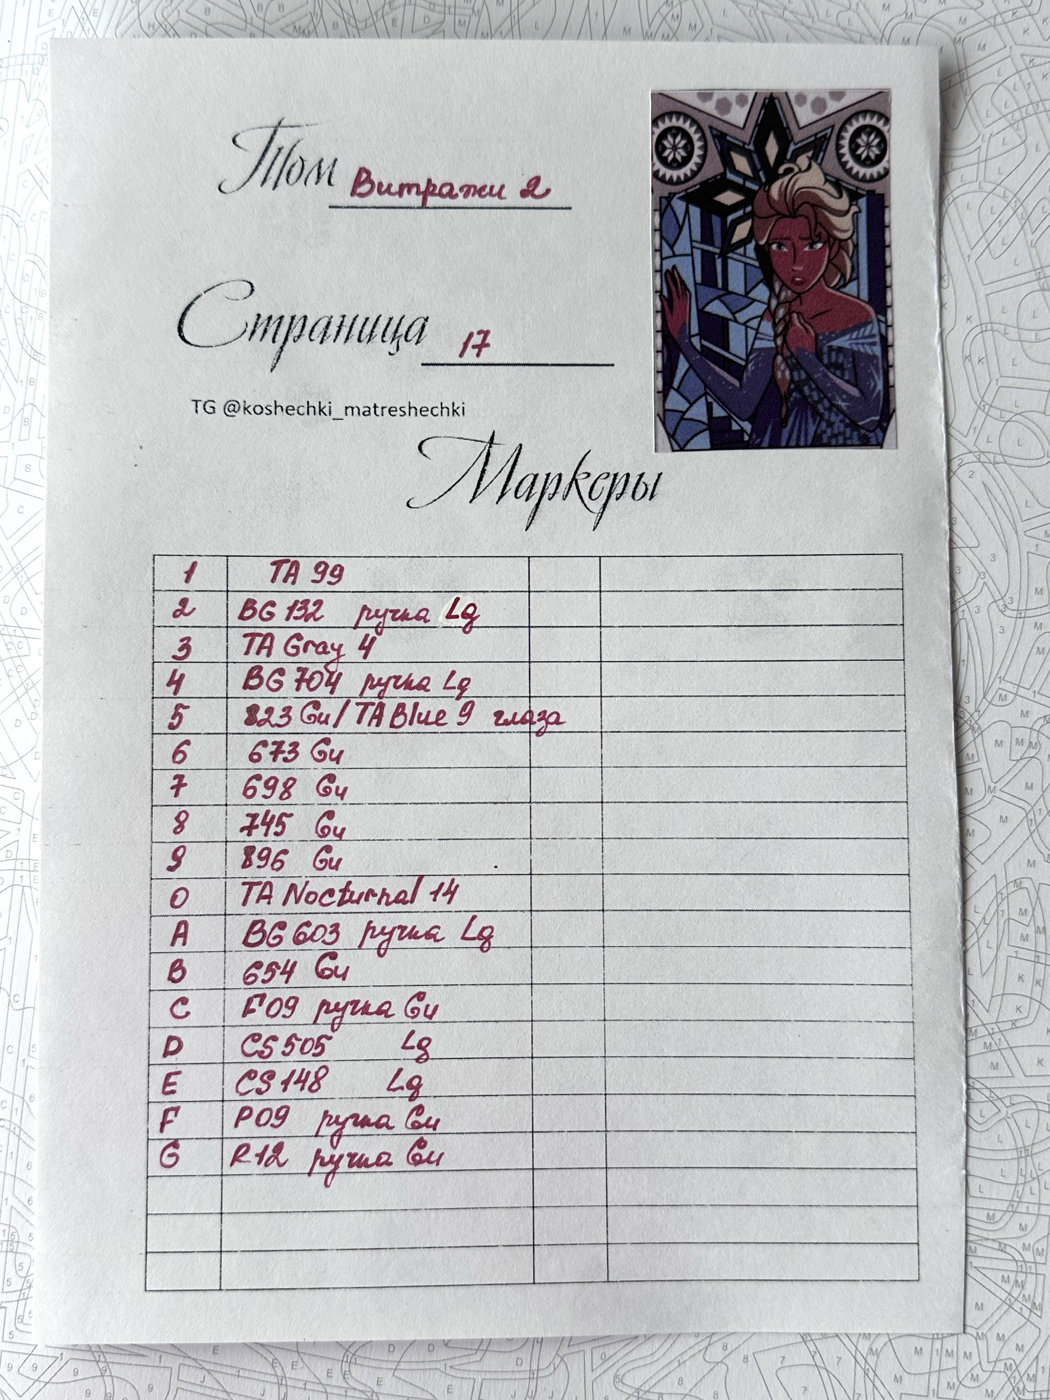 Том Витражи 2
Страница 17
TG @koshechki_matreshechki
Маркеры
1 TA 99
2 BG 132 ручка Lg
3 TA Gray 4
4 BG 704 ручка Lg
5 823 Gu / TA Blue 9 глаза
6 673 Gu
7 698 Gu
8 745 Gu
9 896 Gu
0 TA Nocturnal 14
A BG 603 ручка Lg
B 654 Gu
C F09 ручка Gu
D CS 505 Lg
E CS 148 Lg
F P09 ручка Gu
G R12 ручка Gu